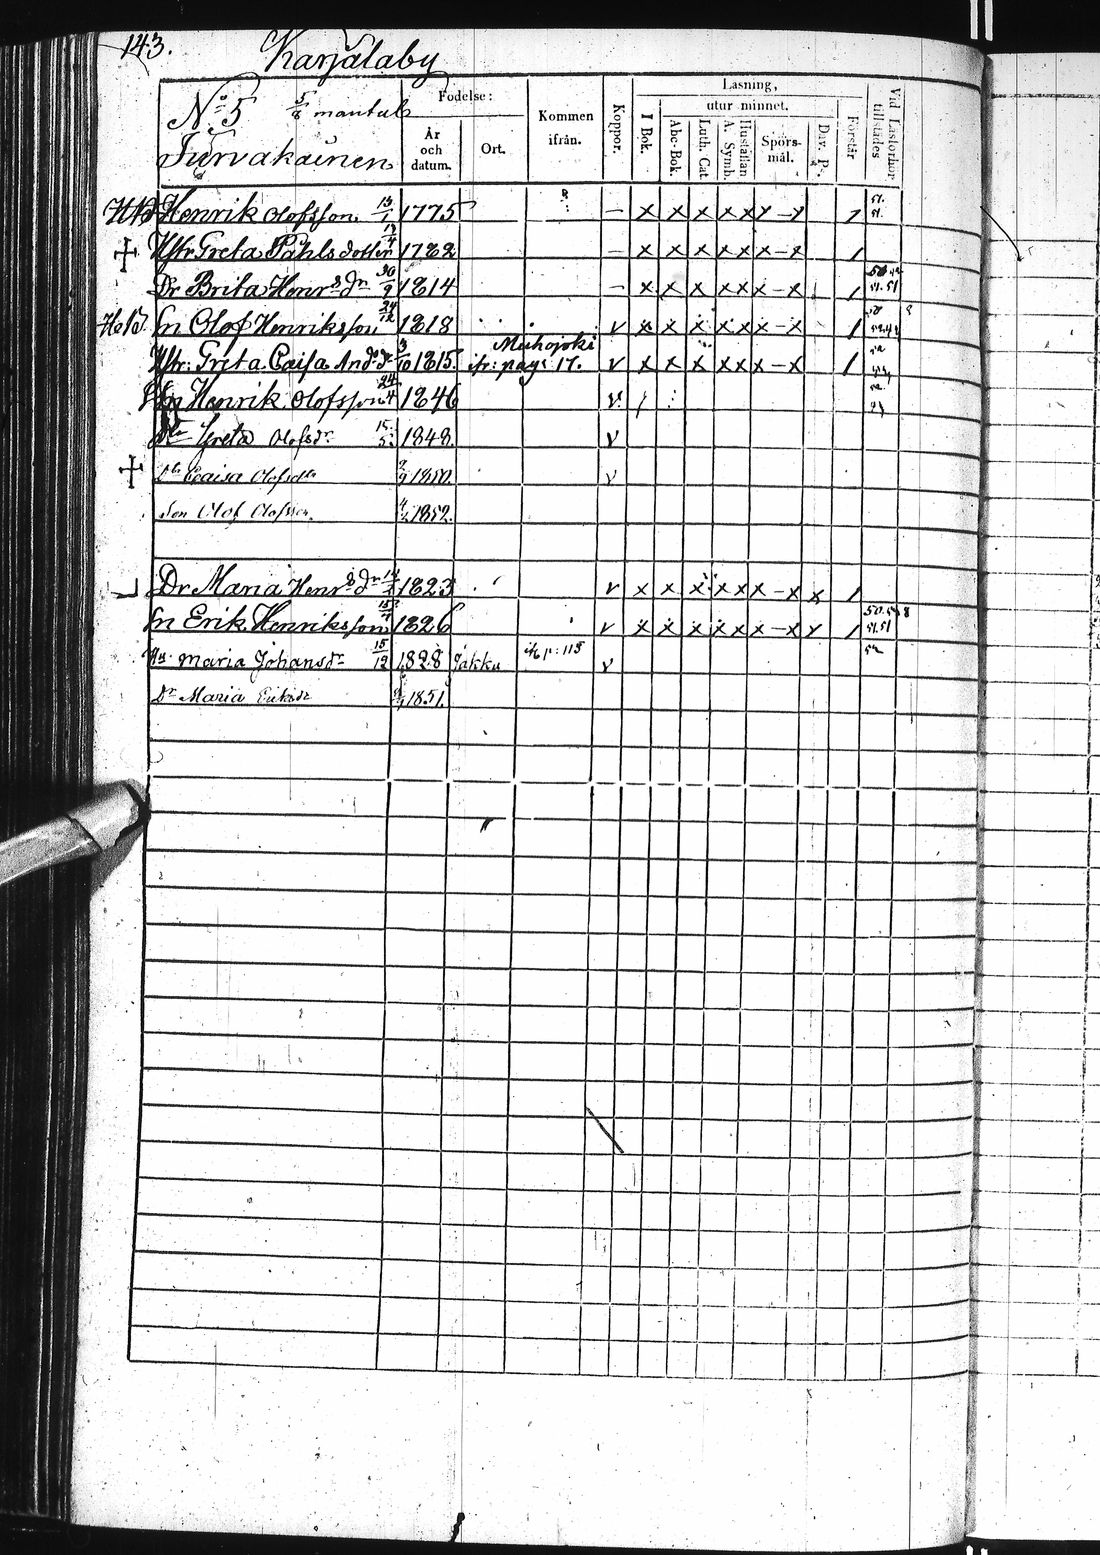 143.
Karjalaby
No 5 5/8 mantal
Turvakainen
Födelse:
År och datum.
Ort.
Kommen ifrån.
Koppor.
Läsning,
I Bok.
utur minnet.
Abc-Bok.
Luth. Cat.
A. Symb.
Hustaflan
Spörs-mål.
Dav. P.
Förstår
Vid Läsförhör tillstädes
Henrik Olofsson 13/1 1775 — x x x x x x – x 1 51. 51.
Hstr Greta Påhlsdotter 1782 — x x x x x x – x 1
Dr Brita Henrsdr 30/9 1814 — x x x x x x – x 1 51.51
Sn Olof Henriksson 24/12 1818 v x x x x x x – x 1
Hstr: Greta Caisa Andsdr 3/10 1815. Muhojoki ifr: pag: 17. v x x x x x x – x 1
Sn Henrik Olofsson 24/4 1846 v
Dr Greta Olofsdr 15/5 1848. v
Dr Caisa Olofsdr 1850. v
Son Olof Olofsson. 1852.
Dr Maria Henrsdr 1823 v x x x x x x – x x 1
Sn Erik Henriksson 1826 v x x x x x x – x x 1 51.51
Hu. Maria Johansdr 15/12 1828 Jakku ifr p: 115 v
Dr Maria Eriksdr 1851.